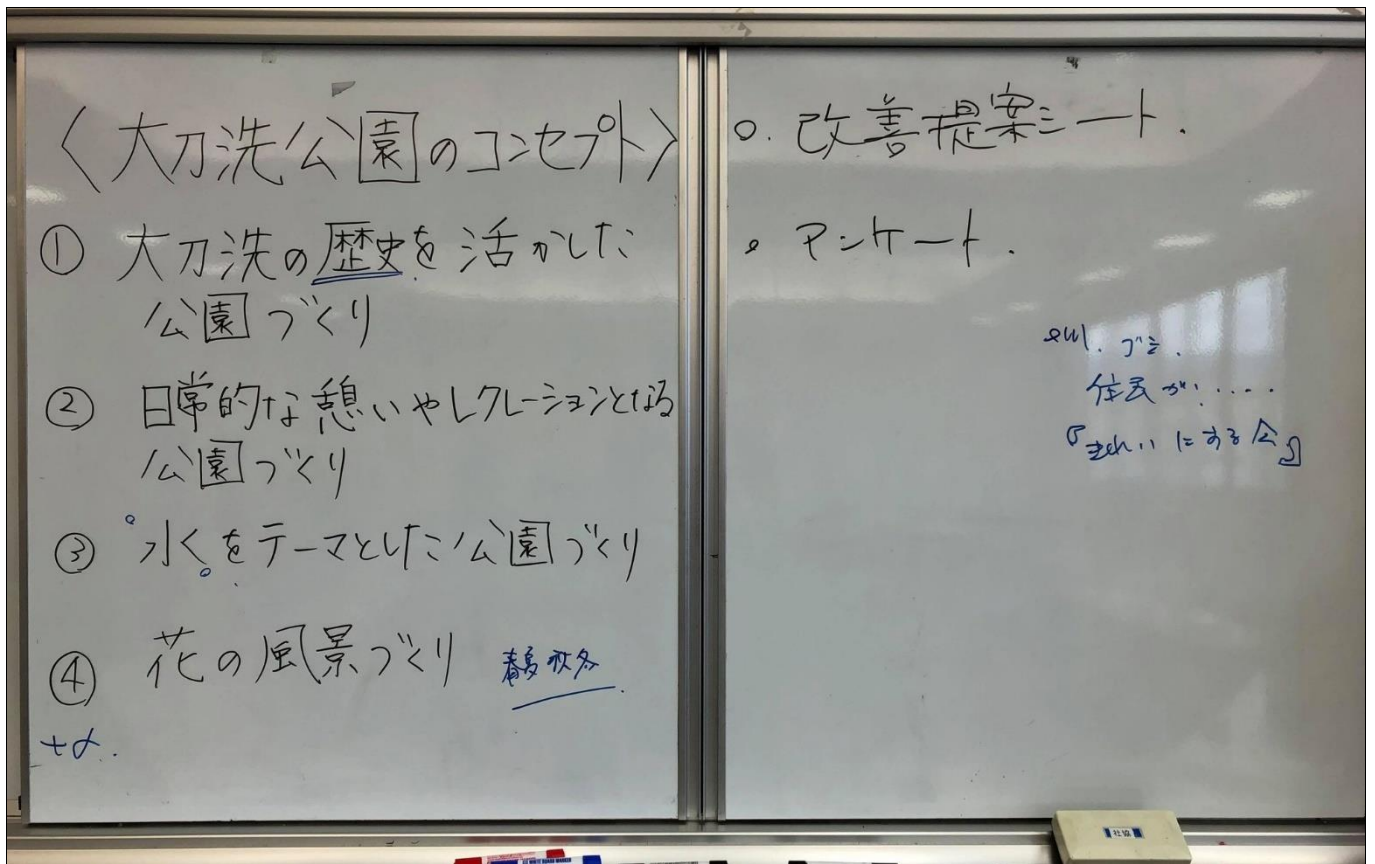 〈大刀洗公園のコンセプト〉
① 大刀洗の歴史を活かした
公園づくり
② 日常的な憩いやレクレーションとなる
公園づくり
③ 水をテーマとした公園づくり
④ 花の風景づくり 春夏秋冬
+α.
○. 改善提案シート.
• アンケート.
ゴミ.
住民が.....
『きれいにする会』
社協